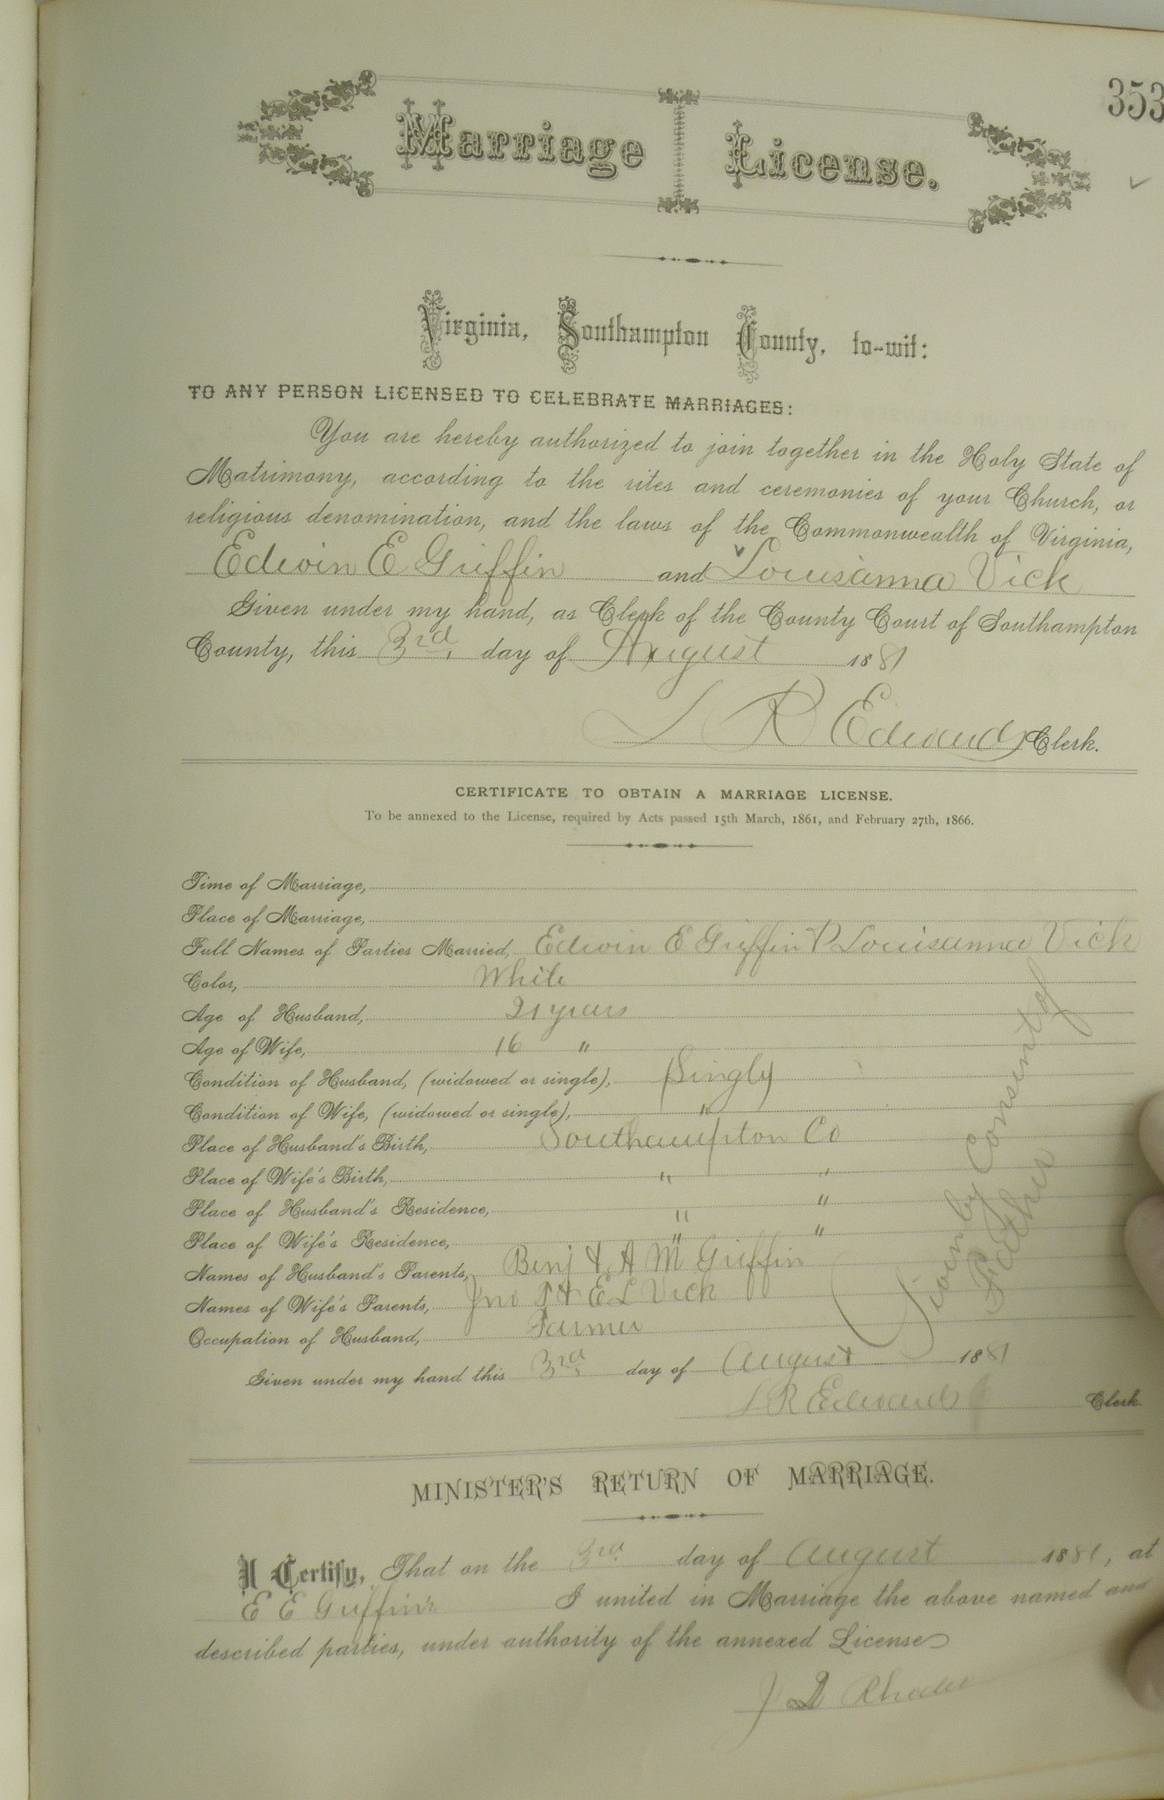 353
Marriage License.
Virginia, Southampton County, to-wit:
TO ANY PERSON LICENSED TO CELEBRATE MARRIAGES:
You are hereby authorized to join together in the Holy State of
Matrimony, according to the rites and ceremonies of your Church, or
religious denomination, and the laws of the Commonwealth of Virginia,
Edwin E Griffin and Louisanna Vick
Given under my hand, as Clerk of the County Court of Southampton
County, this 3rd day of August 1881
L R Edwards Clerk.
CERTIFICATE TO OBTAIN A MARRIAGE LICENSE.
To be annexed to the License, required by Acts passed 15th March, 1861, and February 27th, 1866.
Time of Marriage,
Place of Marriage,
Full Names of Parties Married, Edwin E Griffin & Louisanna Vick
Color, White
Age of Husband, 21 years
Age of Wife, 16 "
Condition of Husband, (widowed or single), Single
Condition of Wife, (widowed or single), "
Place of Husband's Birth, Southampton Co
Place of Wife's Birth, " "
Place of Husband's Residence, " "
Place of Wife's Residence, " "
Names of Husband's Parents, Benj & A M Griffin
Names of Wife's Parents, Jno & E L Vick
Occupation of Husband, Farmer
Given by Consent of
Father
Given under my hand this 3rd day of August 1881
L R Edwards Clerk.
MINISTER'S RETURN OF MARRIAGE.
I Certify, That on the 3rd day of August 1881, at
E E Griffin's I united in Marriage the above named and
described parties, under authority of the annexed License
J D Rhodes